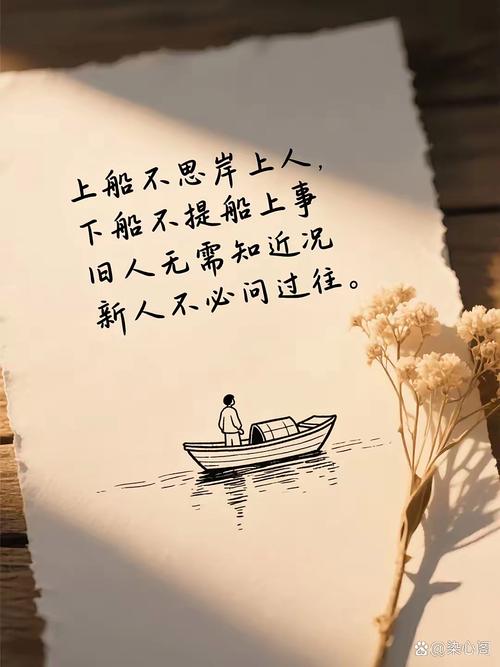 上船不思岸上人，
下船不提船上事
旧人无需知近况
新人不必问过往。
染心阁